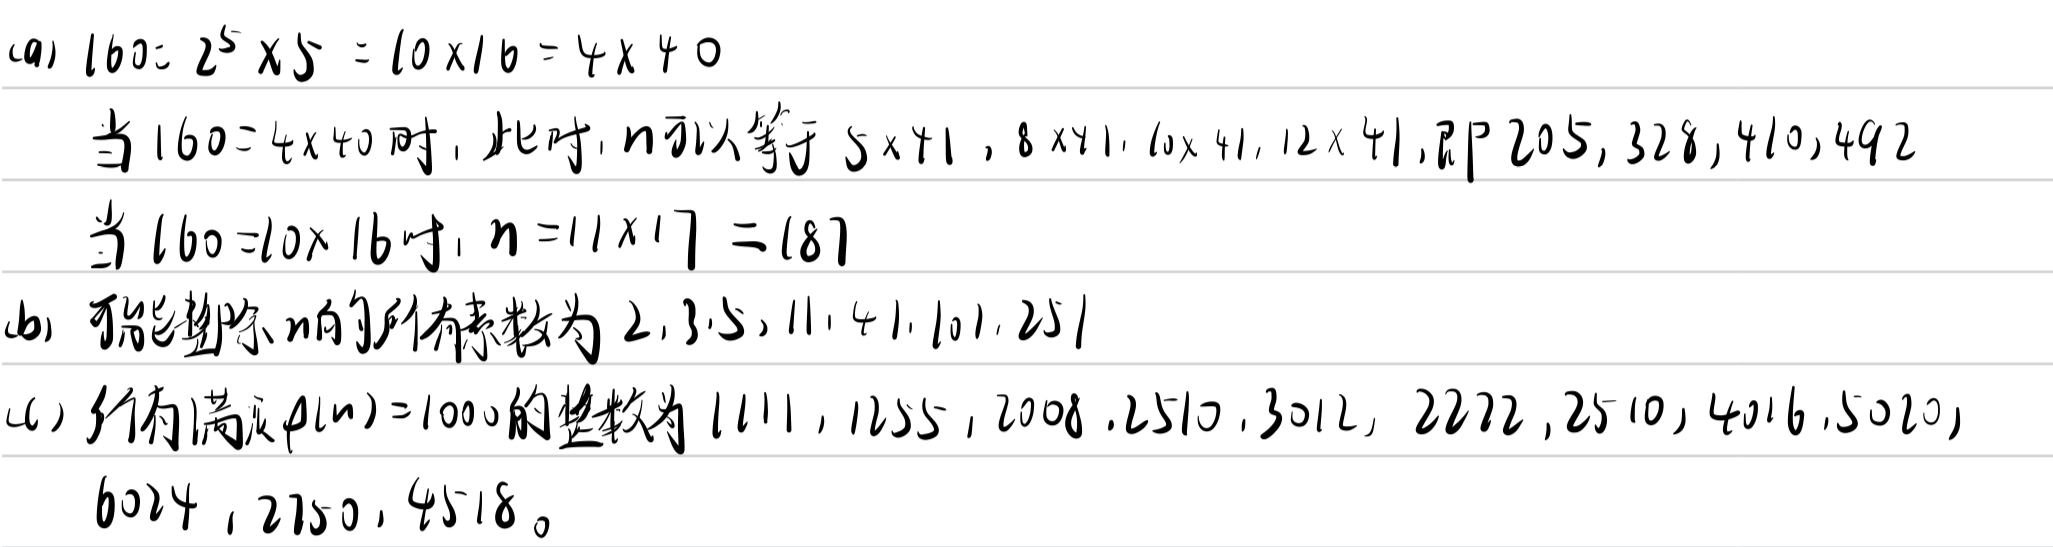 (a) 160=2⁵×5=10×16=4×40
当160=4×40时,此时,n可以等于5×41,8×41,10×41,12×41,即205,328,410,492
当160=10×16时,n=11×17=187
(b) 可能整除n的所有素数为2,3,5,11,41,101,251
(c) 所有满足φ(n)=1000的整数为1111,1255,2008.2510,3012,2222,2510,4016,5020,
6024,2750,4518。